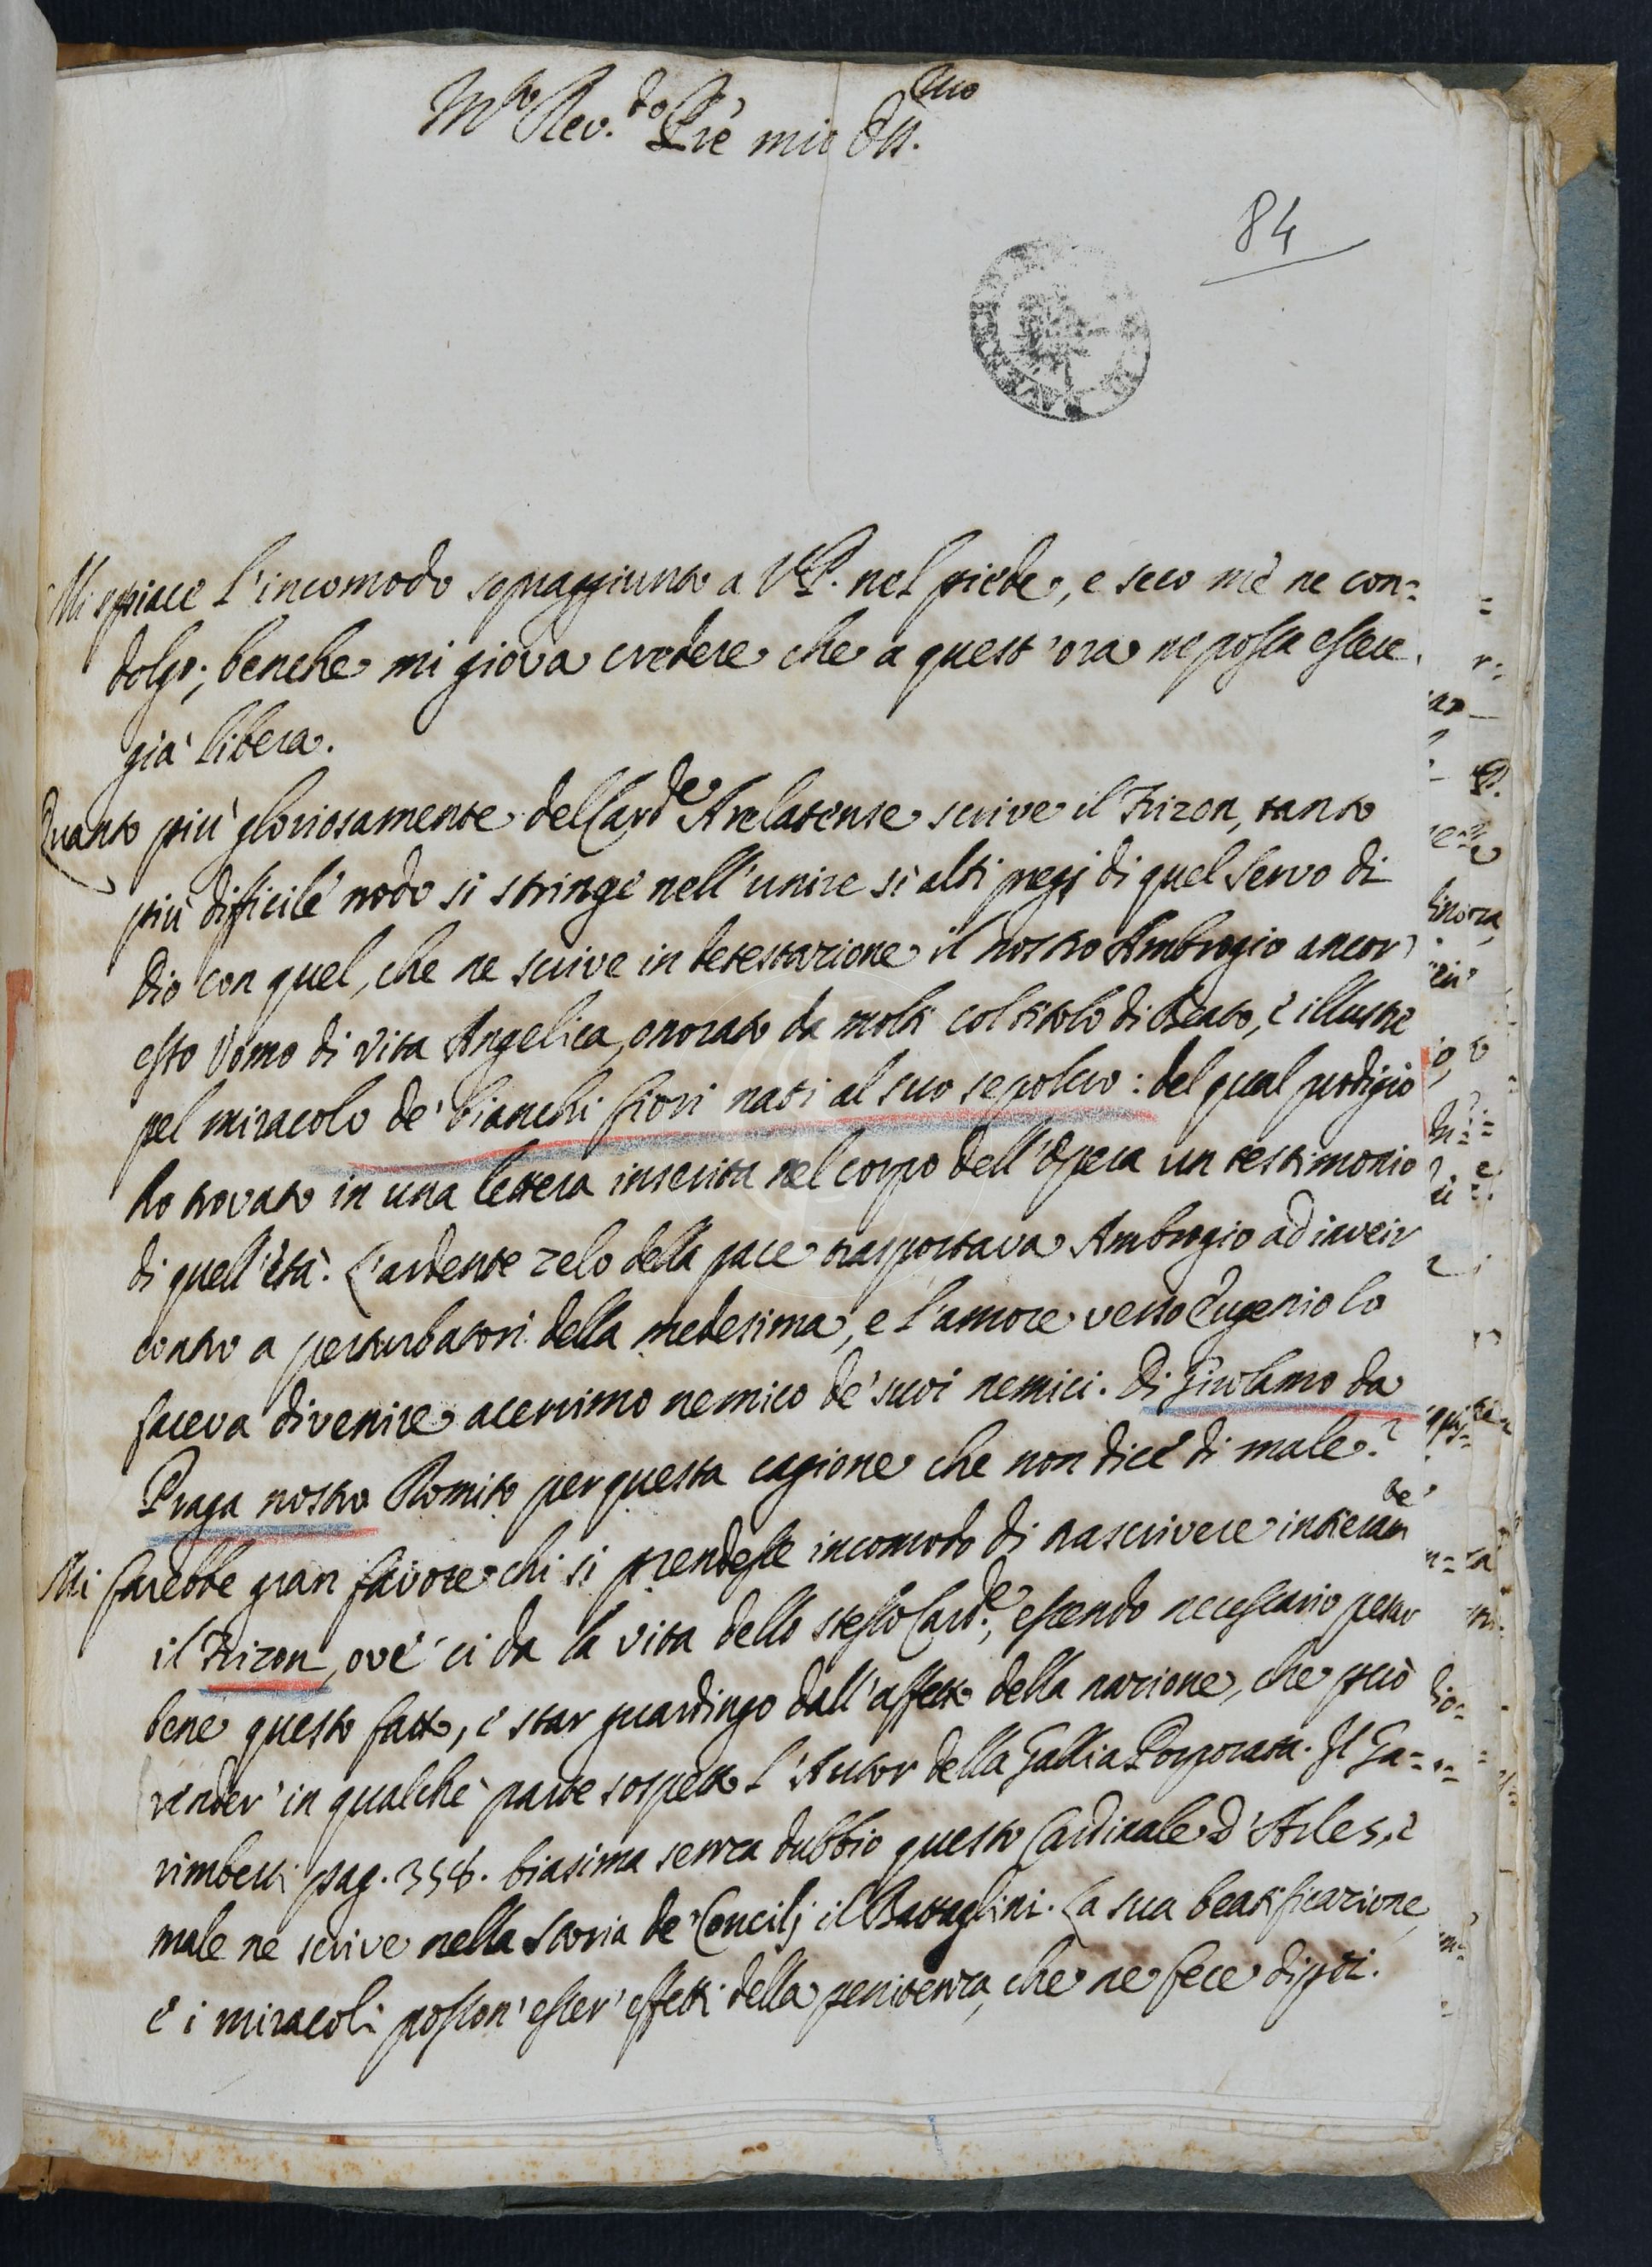 M.to Rev.do Pre mio Oss.mo
84
Mi spiace l'incomodo sopraggiunto a V.P. nel piede, e seco me ne con=
dolgo; benche mi giova credere che a quest'ora ne possa essere
già libera.
Quanto più gloriosamente del Card.e Arelatense scrive il Frizon, tanto
più difficile nodo si stringe nell'unire sì alti pregj di quel Servo di
Dio con quel, che ne scrive in detestazione il nostro Ambrogio ancor
esso Uomo di vita Angelica, onorato da molti col titolo di Beato, e illustre
pel miracolo de' bianchi fiori nati al suo sepolcro: del qual prodigio
ho trovato in una lettera inserita nel corpo dell'Opera un testimonio
di quell'età. L'ardente zelo della pace trasportava Ambrogio ad inveir
contro a perturbatori della medesima, e l'amore verso Eugenio lo
faceva divenire acerrimo nemico de' suoi nemici. Di Girolamo da
Praga nostro Romito per questa cagione che non dice di male?
Mi farebbe gran favore chi si prendesse incomodo di trascrivere intieram.te
il Frizon, ove ci da la vita dello stesso Card.e, essendo necessario pesar
bene questo fatto, e star guardingo dall'affetto della nazione, che può
render in qualche parte sospetto l'Autor della Gallia Porporata. Il Ga=
rimberti pag. 358. biasima senza dubbio questo Cardinale d'Arles, e
male ne scrive nella Storia de' Concilj il Battaglini. La sua beatificazione,
e i miracoli posson' esser' effetti della penitenza, che ne fece dipoi.